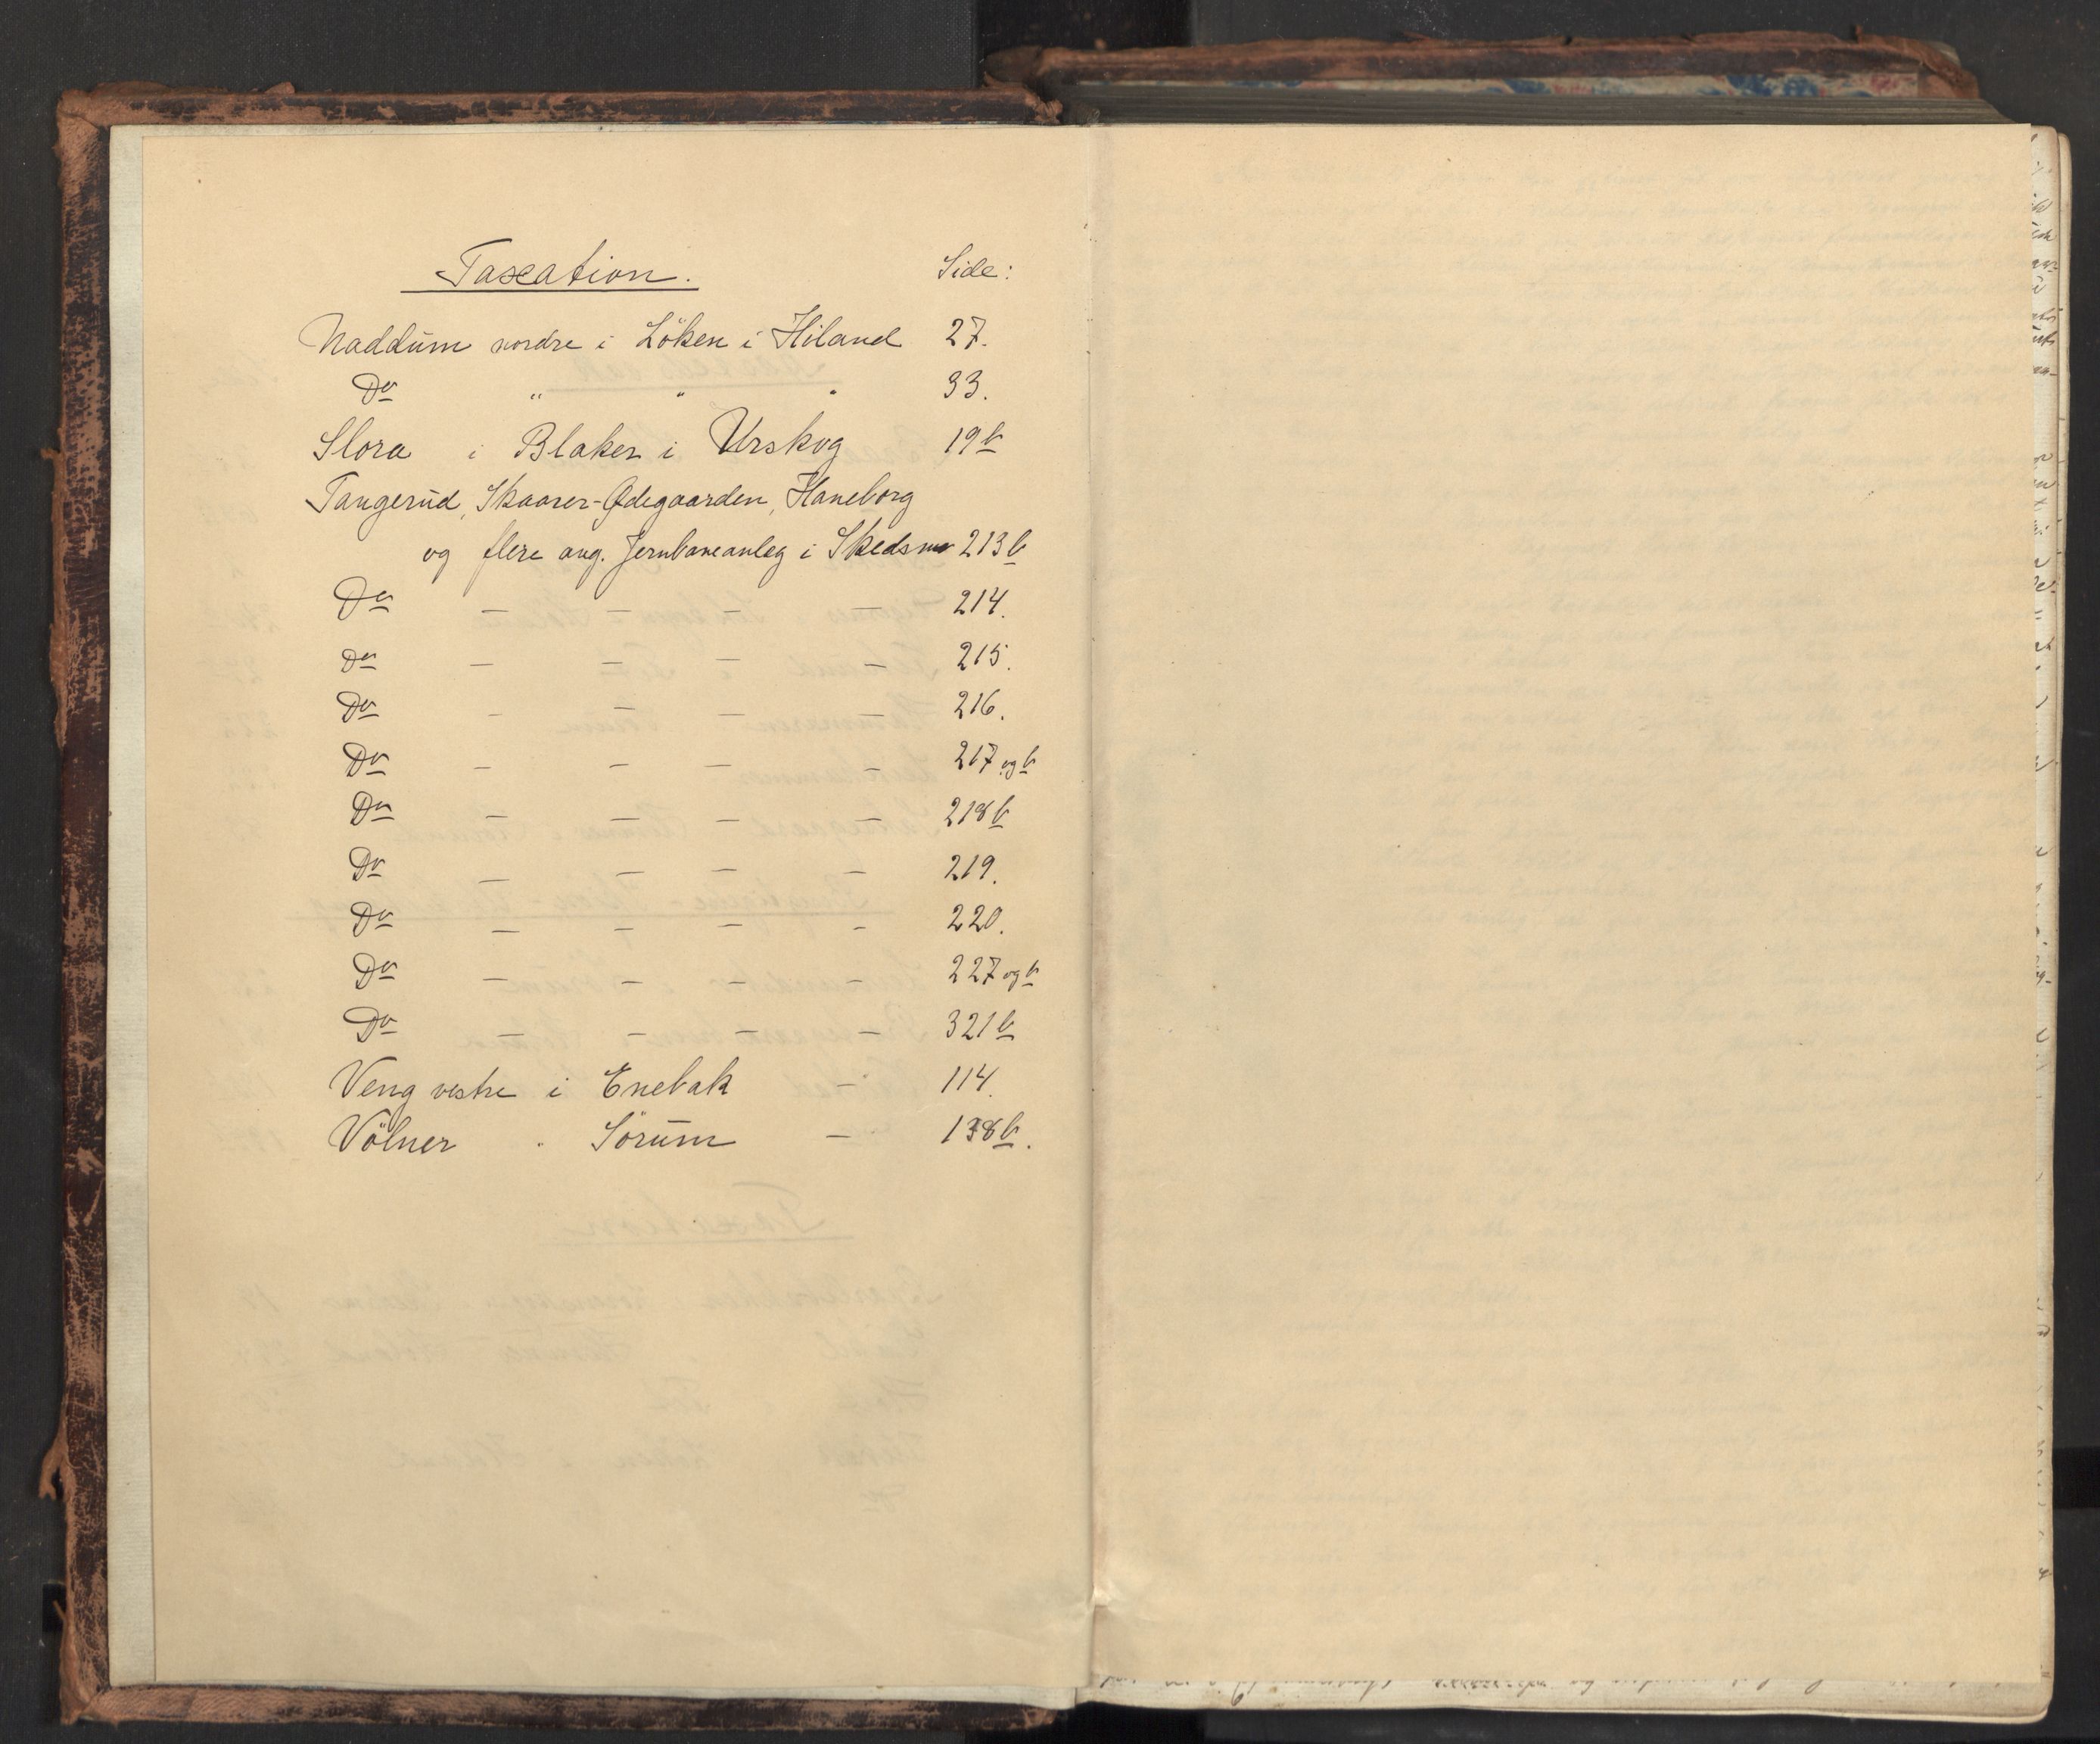 Taxation. Side:
Naddum nordre i Löken i Höland 27.
Do " " " 33.
Slora i Blaker i Urskog 19b
Tangerud, Skaarer-Ødegaarden, Haneborg
og flere ang. Jernbaneanleg i Skedsmo 213b
Do — — — — 214.
Do — — — — 215.
Do — — — — 216.
Do — — — — 217 og b
Do — — — — 218b
Do — — — — 219.
Do — — — — 220.
Do — — — — 227 og b
Do — — — — 321b
Veng vestre i Enebak — 114.
Völner " Sörum — 138b.